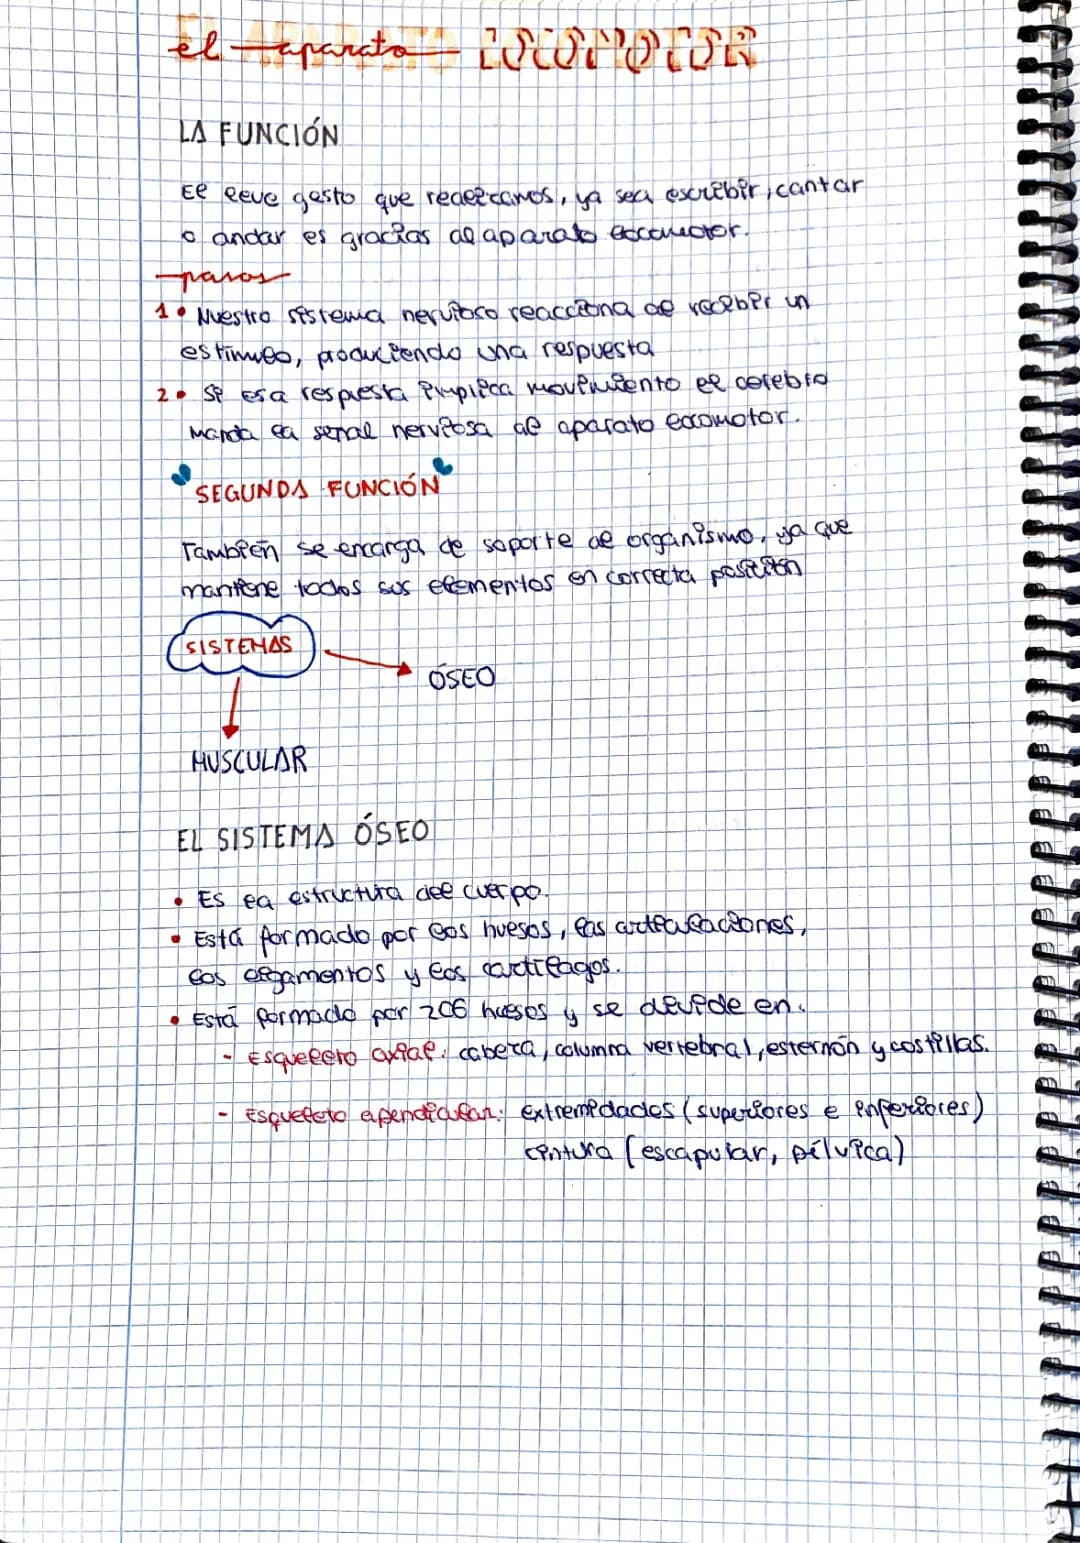 el aparato LOCOMOTOR
LA FUNCIÓN
El leve gesto que realizamos, ya sea escribir, cantar
o andar es gracias al aparato locomotor.
pasos
1• Nuestro sistema nervioso reacciona al recibir un
estímulo, produciendo una respuesta
2• Si esa respuesta implica movimiento el cerebro
manda la señal nerviosa al aparato locomotor.
SEGUNDA FUNCIÓN
También se encarga de soporte al organismo, ya que
mantiene todos sus elementos en correcta posición
SISTEMAS
ÓSEO
MUSCULAR
EL SISTEMA ÓSEO
• Es la estructura del cuerpo.
• Está formado por los huesos, las articulaciones,
los ligamentos y los cartílagos.
• Está formado por 206 huesos y se divide en:
- Esqueleto axial: cabeza, columna vertebral, esternón y costillas.
- Esqueleto apendicular: extremidades (superiores e inferiores)
cintura (escapular, pélvica)